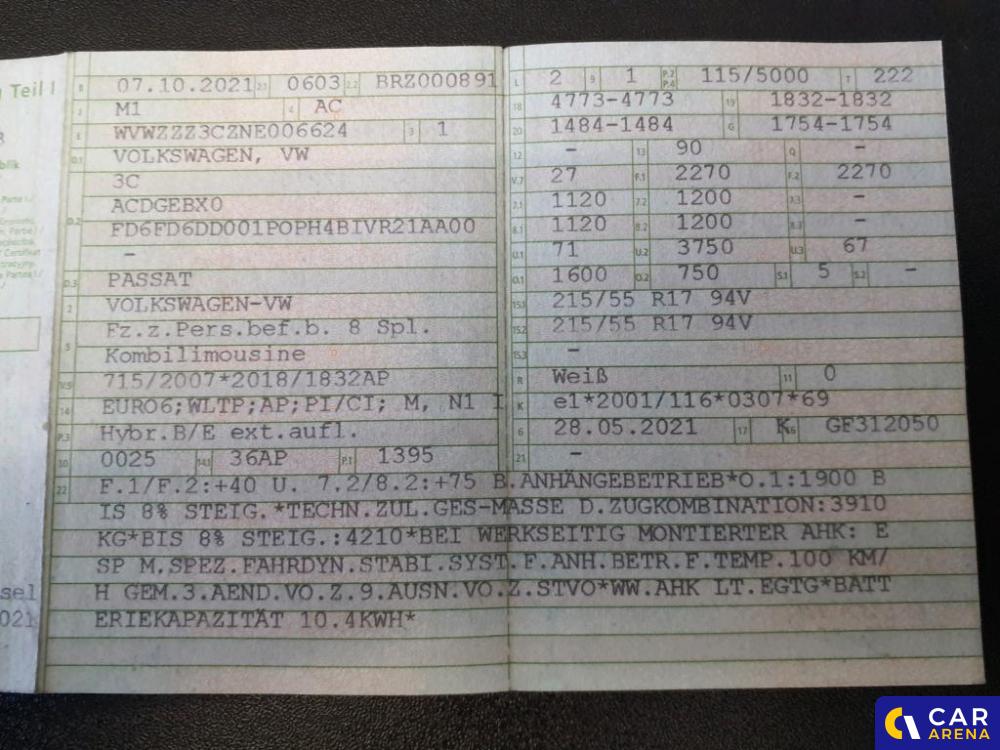 Teil I
B 07.10.2021 2.1 0603 2.2 BRZ000891
J M1 4 AC
E WVWZZZ3CZNE006624 3 1
D.1 VOLKSWAGEN, VW
3C
D.2 ACDGEBX0
FD6FD6DD001P0PH4BIVR21AA00
–
D.3 PASSAT
2 VOLKSWAGEN-VW
5 Fz.z.Pers.bef.b. 8 Spl.
Kombilimousine
V.9 715/2007*2018/1832AP
14 EURO6;WLTP;AP;PI/CI; M, N1 I
P.3 Hybr.B/E ext.aufl.
10 0025 14.1 36AP P.1 1395
L 2 9 1 P.2 P.4 115/5000 T 222
18 4773-4773 19 1832-1832
20 1484-1484 G 1754-1754
12 – 13 90 Q –
V.7 27 F.1 2270 F.2 2270
7.1 1120 7.2 1200 7.3 –
8.1 1120 8.2 1200 8.3 –
U.1 71 U.2 3750 U.3 67
O.1 1600 O.2 750 S.1 5 S.2 –
15.1 215/55 R17 94V
15.2 215/55 R17 94V
15.3 –
R Weiß 11 0
K e1*2001/116*0307*69
6 28.05.2021 17 K 16 GF312050
21 –
22 F.1/F.2:+40 U. 7.2/8.2:+75 B.ANHÄNGEBETRIEB*O.1:1900 B
IS 8% STEIG.*TECHN.ZUL.GES-MASSE D.ZUGKOMBINATION:3910
KG*BIS 8% STEIG.:4210*BEI WERKSEITIG MONTIERTER AHK: E
SP M.SPEZ.FAHRDYN.STABI.SYST.F.ANH.BETR.F.TEMP.100 KM/
H GEM.3.AEND.VO.Z.9.AUSN.VO.Z.STVO*WW.AHK LT.EGTG*BATT
ERIEKAPAZITÄT 10.4KWH*
sel
021
CAR
ARENA